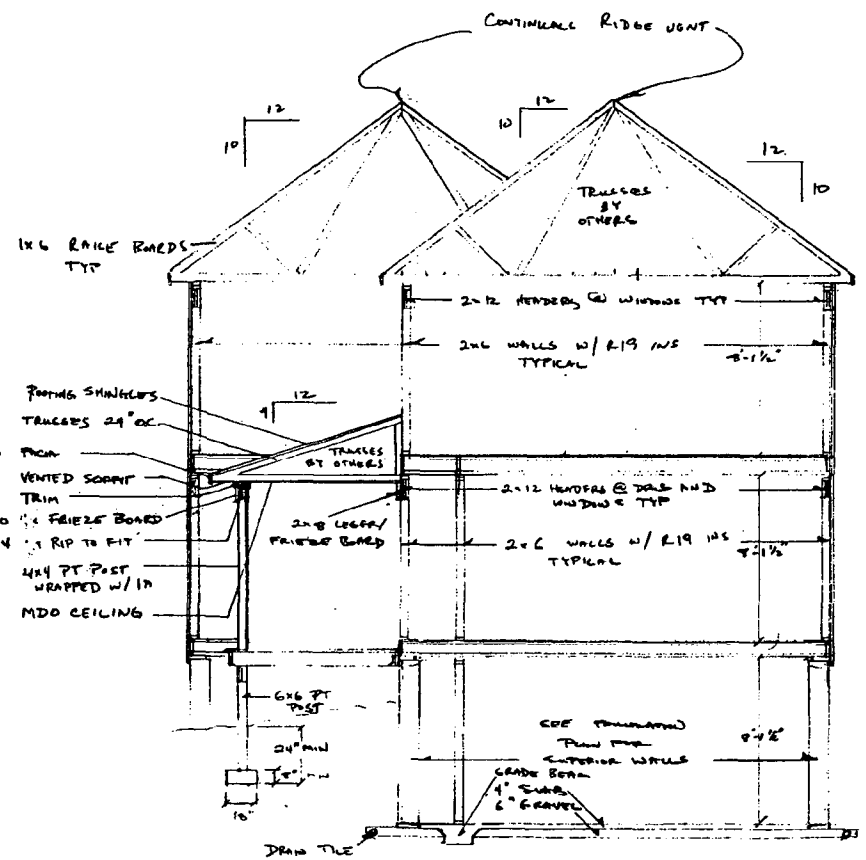 CONTINUALL RIDGE VENT
12
10
12
10
12
10
TRUSSES
BY
OTHERS
1x6 RAKE BOARDS
TYP
2x12 HEADERS @ WINDOWS TYP
2x6 WALLS W/ R19 INS
TYPICAL
8'-1 1/2"
ROOFING SHINGLES
12
4
TRUSSES 24" OC
TRUSSES
BY OTHERS
FACIA
VENTED SOFFIT
TRIM
FRIEZE BOARD
RIP TO FIT
2x8 LEGER/
FRIEZE BOARD
2x12 HEADERS @ DRS AND
WINDOWS TYP
2x6 WALLS W/ R19 INS
TYPICAL
8'-1 1/2"
4x4 PT POST
WRAPPED W/
MDO CEILING
6x6 PT
POST
24" MIN
8" MIN
18"
SEE FOUNDATION
PLAN FOR
SUPERIOR WALLS
GRADE BEAM
4" SLAB
6" GRAVEL
DRAIN TILE